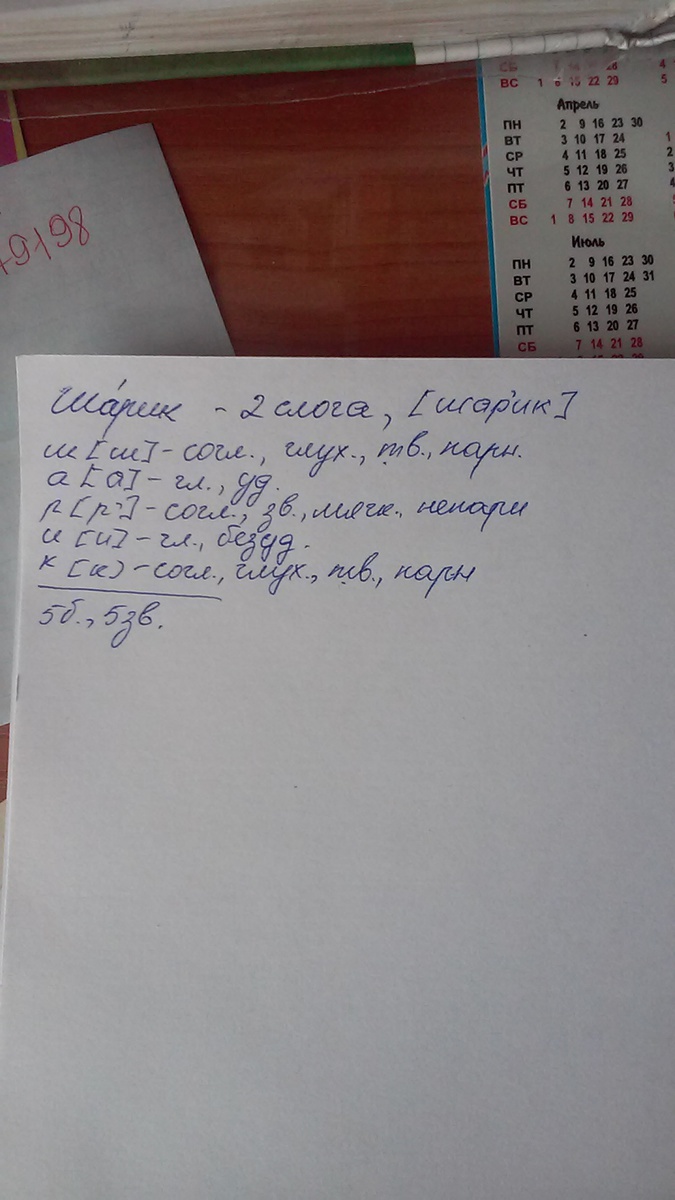 СБ
ВС 1 8 15 22 29 5
Апрель
ПН 2 9 16 23 30
ВТ 3 10 17 24 1
СР 4 11 18 25 2
ЧТ 5 12 19 26 3
ПТ 6 13 20 27 4
СБ 7 14 21 28
ВС 1 8 15 22 29
Июль
ПН 2 9 16 23 30
ВТ 3 10 17 24 31
СР 4 11 18 25
ЧТ 5 12 19 26
ПТ 6 13 20 27
СБ 7 14 21 28
79198
Ша́рик - 2 слога, [шар'ик]
ш [ш] - согл., глух., тв., парн.
а [а] - гл., уд.
р [р'] - согл., зв., мягк., непарн
и [и] - гл., безуд.
к [к] - согл., глух., тв., парн
5б., 5зв.